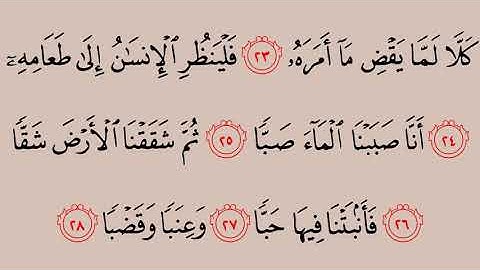 كَلَّا لَمَّا يَقْضِ مَآ أَمَرَهُۥ ٢٣ فَلْيَنظُرِ ٱلْإِنسَٰنُ إِلَىٰ طَعَامِهِۦٓ
٢٤ أَنَّا صَبَبْنَا ٱلْمَآءَ صَبًّا ٢٥ ثُمَّ شَقَقْنَا ٱلْأَرْضَ شَقًّا
٢٦ فَأَنۢبَتْنَا فِيهَا حَبًّا ٢٧ وَعِنَبًا وَقَضْبًا ٢٨